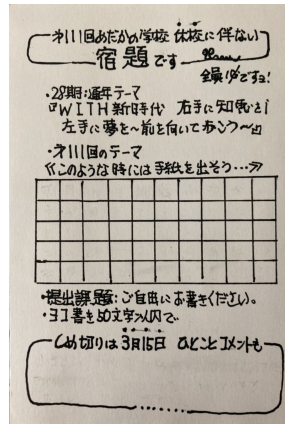 才111回めだかの学校 休校に伴ない
宿題です
全員!!ですヨ!
・28期:通年テーマ
『WITH新時代 右手に知恵を!
左手に夢を〜前を向いて歩こう〜』
・才111回のテーマ
《このような時には手紙を出そう…》
・提出課題:ご自由にお書きください。
・ヨコ書を50文字以内で
しめ切りは3月15日 ひとことコメントも